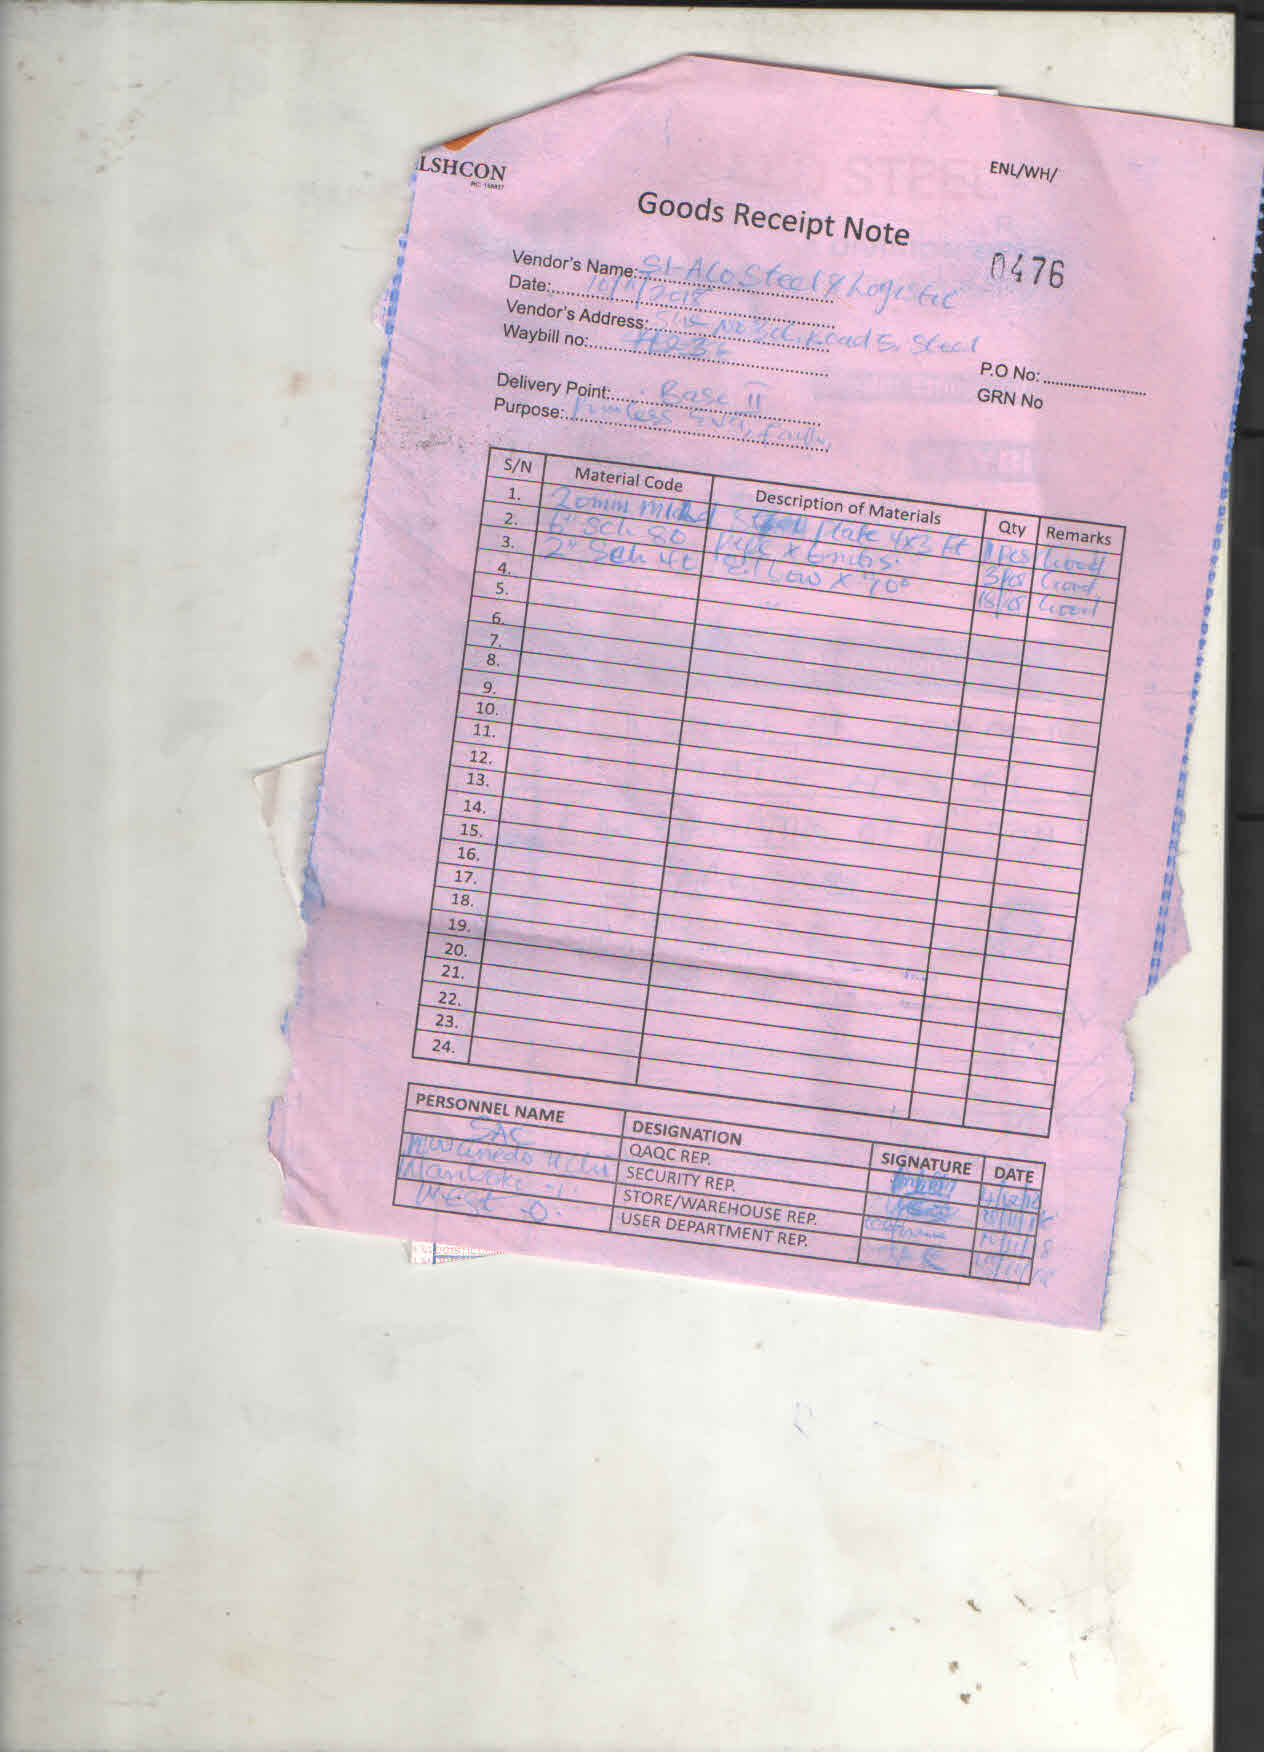 LSHCON
ENL/WH/
Goods Receipt Note
0476
Vendor's Name: SI-ALO Steel & Logistic
Date: 10/11/2018
Vendor's Address: Road 5, Steel
Waybill no:
P.O No:
GRN No
Delivery Point: Base II
Purpose:
S/N Material Code Description of Materials Qty Remarks
1. 20mm mild Steel plate 4x3 ft 1 pcs Good
2. 6" Sch 80 pipe x 6mtrs. 3pcs Good
3. 2" Sch 40 Elbow x 90° 18pcs Good
4.
5.
6.
7.
8.
9.
10.
11.
12.
13.
14.
15.
16.
17.
18.
19.
20.
21.
22.
23.
24.
PERSONNEL NAME DESIGNATION SIGNATURE DATE
SAC QAQC REP.
SECURITY REP.
STORE/WAREHOUSE REP. 10/11/18
West O. USER DEPARTMENT REP. 10/11/18